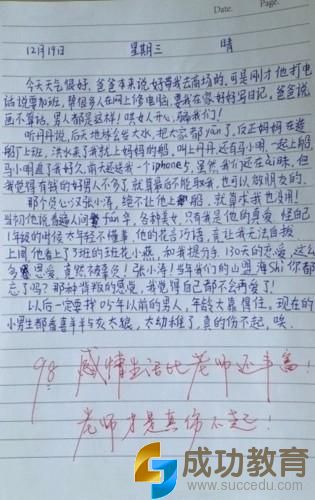 Date. Page.
12月19日 星期三 晴
今天天气很好,爸爸本来说好带我去商场的,可是刚才他打电
话说要加班,帮很多人在网上修电脑,要我在家好好写日记。爸爸说
画不算话,男人都是这样!哄女人开心,骗我们!
听丹丹说,后天地球会发大水,把大家都yān了,反正妈妈在造
船厂上班,洪水来了我就上妈妈的船,叫上丹丹还有马小明一起上船,
马小明追了我好久,前天还送我一个iphone5,虽然我们还在ài昧,但
我觉得有钱的好男人不多了,就算最后不能娶我,也可以做朋友的。
那个负心汉张小涛,绝不让他上船,就算求我也没用!
当初他说看遍人间fán华,各种美女,只有我是他的真爱,怪自己
1年级的时候太年轻不懂事,他的花言巧语,竟让我无法自拔
上周他看上了3班的班花小燕,和我提分手,130天的恋爱,这么
多恩爱,竟然被辜负!张小涛!当年我们的山盟海shì你都
忘了吗?那种背叛的感觉,我觉得自己都不会再爱了!
以后一定要找05年以前的男人,年龄大靠得住,现在的
小男生都看喜羊羊与灰太狼,太幼稚了,真的伤不起,唉
98 感情生活比老师还丰富!
老师才是真伤不起!
成功教育
www.succedu.com